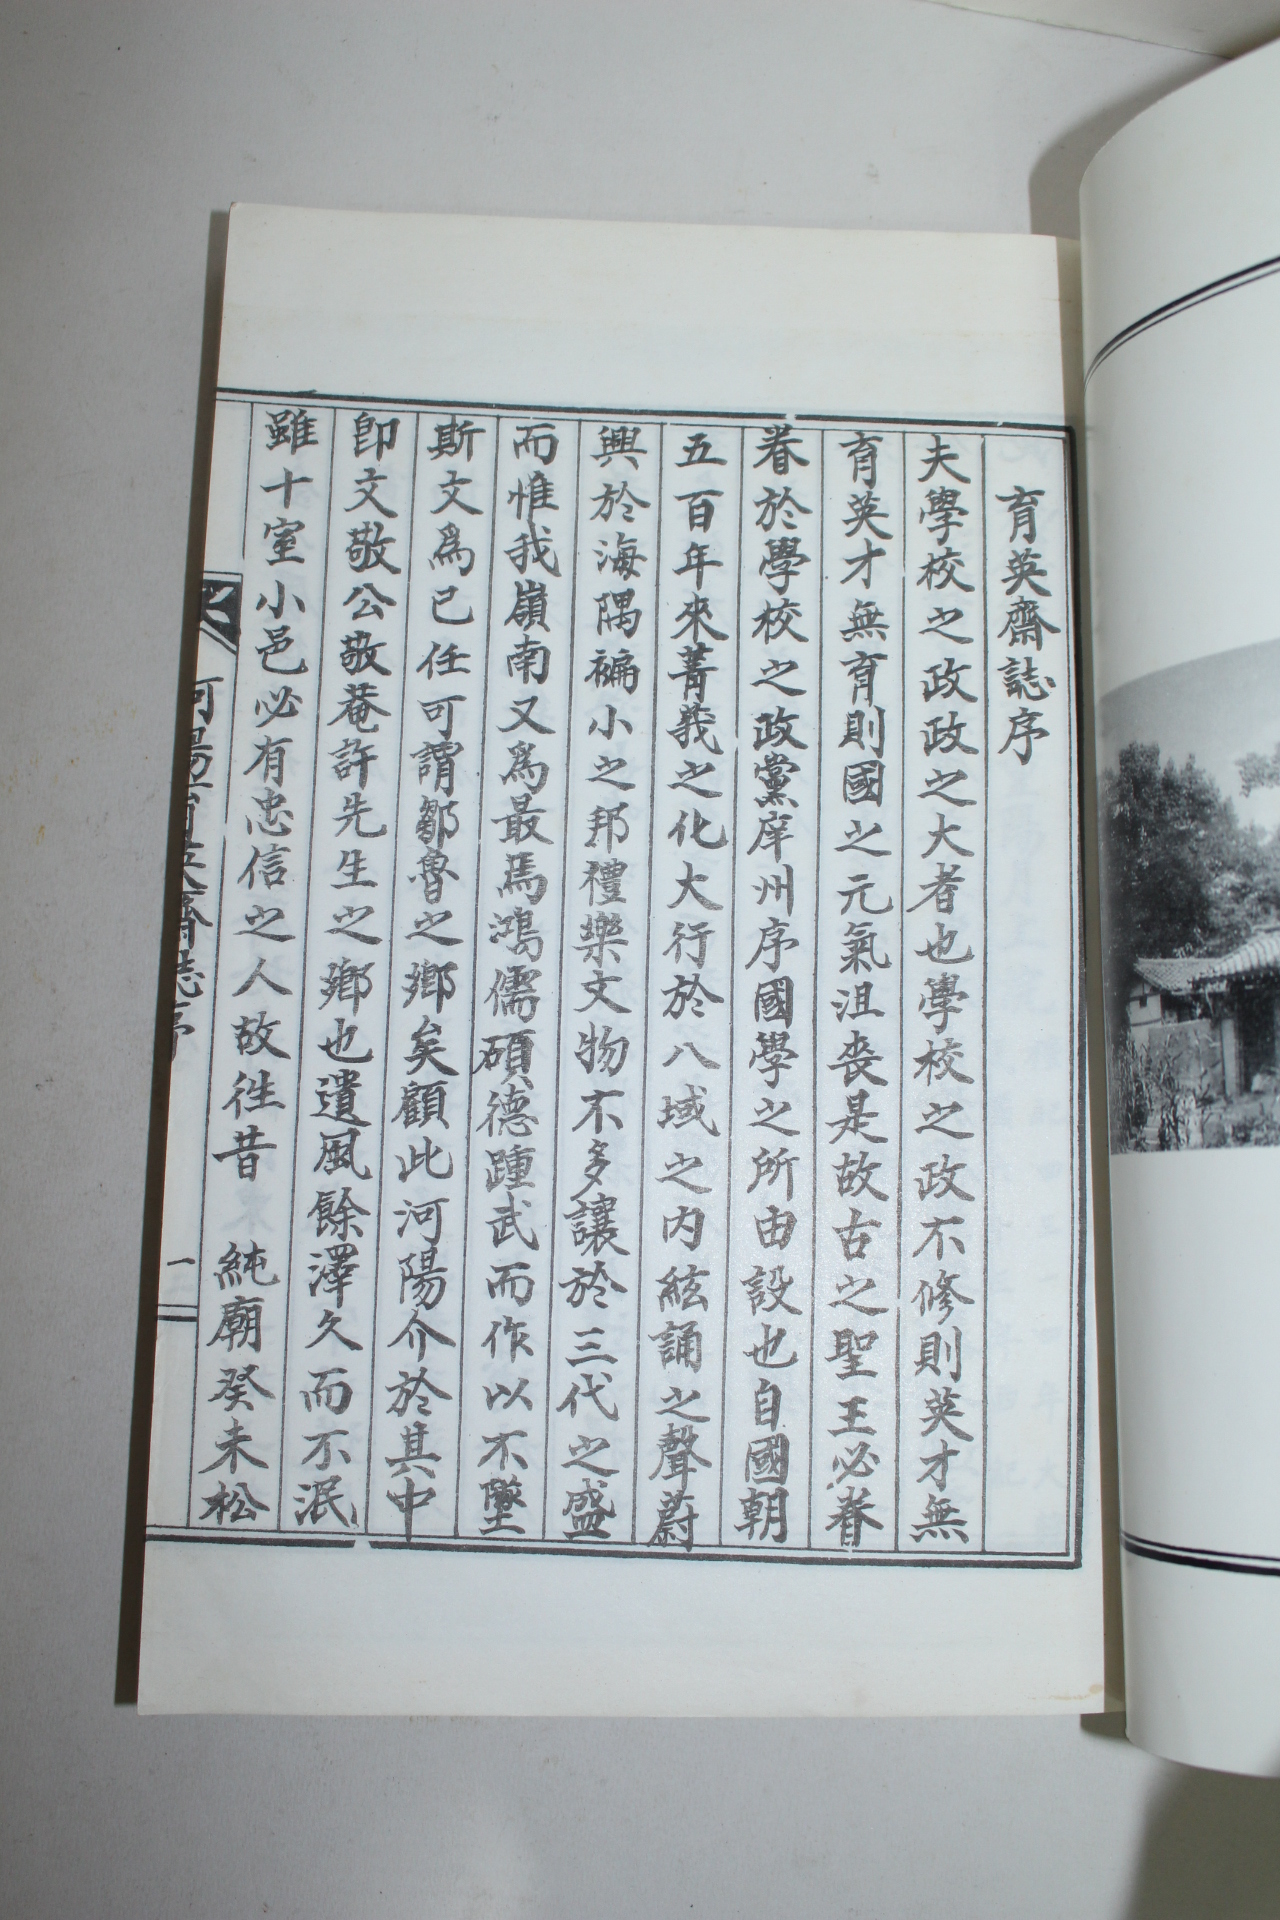 育英齋誌序
夫學校之政政之大者也學校之政不修則英才無
育英才無育則國之元氣沮喪是故古之聖王必眷
眷於學校之政黨庠州序國學之所由設也自國朝
五百年來菁義之化大行於八域之內絃誦之聲蔚
興於海隅褊小之邦禮樂文物不多讓於三代之盛
而惟我嶺南又爲最焉鴻儒碩德踵武而作以不墜
斯文爲已任可謂鄒魯之鄕矣顧此河陽介於其中
卽文敬公敬菴許先生之鄕也遺風餘澤久而不泯
雖十室小邑必有忠信之人故徃昔 純廟癸未松
河陽育英齋誌序
一